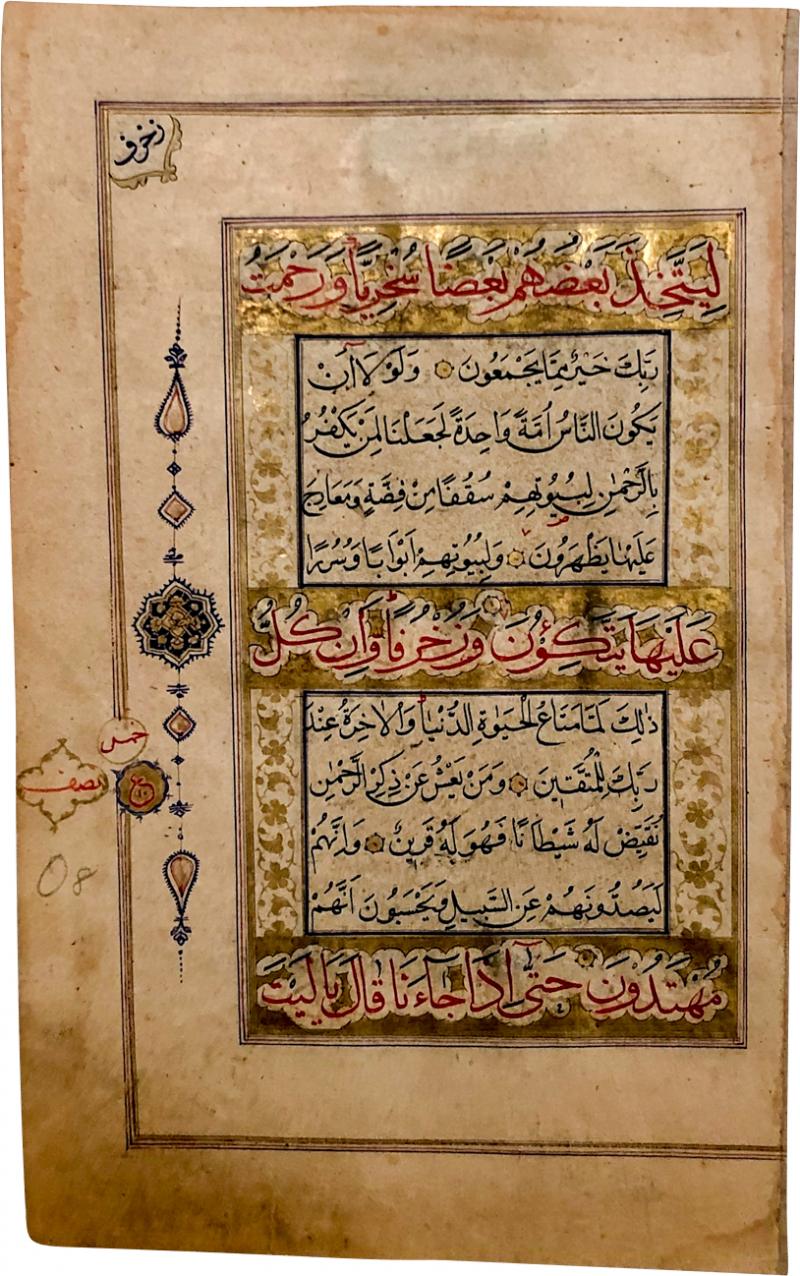 زخرف
لِيَتَّخِذَ بَعْضُهُمْ بَعْضًا سُخْرِيًّا وَرَحْمَتُ
رَبِّكَ خَيْرٌ مِمَّا يَجْمَعُونَ وَلَوْلَا أَنْ
يَكُونَ النَّاسُ أُمَّةً وَاحِدَةً لَجَعَلْنَا لِمَنْ يَكْفُرُ
بِالرَّحْمٰنِ لِبُيُوتِهِمْ سُقُفًا مِنْ فِضَّةٍ وَمَعَارِجَ
عَلَيْهَا يَظْهَرُونَ وَلِبُيُوتِهِمْ أَبْوَابًا وَسُرُرًا
عَلَيْهَا يَتَّكِؤُنَ وَزُخْرُفًا وَاِنْ كُلُّ
ذٰلِكَ لَمَّا مَتَاعُ الْحَيٰوةِ الدُّنْيَا وَالْاٰخِرَةُ عِنْدَ
رَبِّكَ لِلْمُتَّقِينَ وَمَنْ يَعْشُ عَنْ ذِكْرِ الرَّحْمٰنِ
نُقَيِّضْ لَهُ شَيْطَانًا فَهُوَ لَهُ قَرِينٌ وَاِنَّهُمْ
لَيَصُدُّونَهُمْ عَنِ السَّبِيلِ وَيَحْسَبُونَ اَنَّهُمْ
مُهْتَدُونَ حَتّٰى اِذَا جَاءَنَا قَالَ يَا لَيْتَ
خمس
نصف